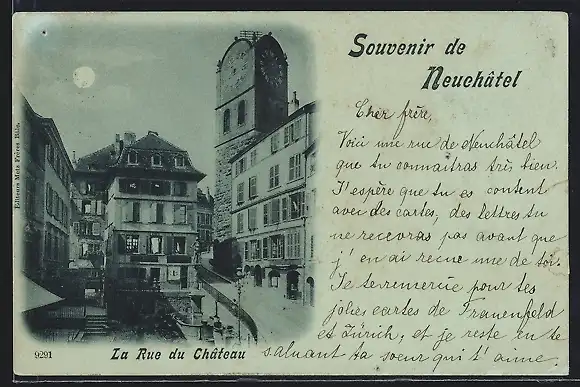 Souvenir de
Neuchâtel
Cher frère,
Voici une rue de Neuchâtel
que tu connaîtras très bien.
J'espère que tu es content
avec des cartes, des lettres tu
ne recevras pas avant que
j'en ai recue une de toi.
Je te remercie pour tes
jolies cartes de Frauenfeld
et Zürich, et je reste en te
saluant ta soeur qui t'aime.
Editeurs Metz Frères Bâle.
9291
La Rue du Château